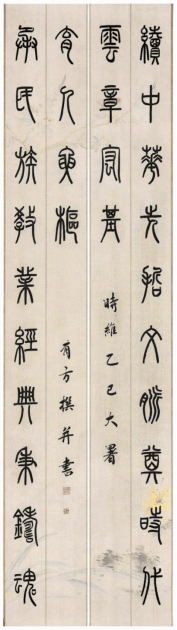 續中華先哲文脈奠時代
雲章宏基
時維乙巳大暑
承民族教業經典秉鑄魂
育人奧樞
有方撰并書